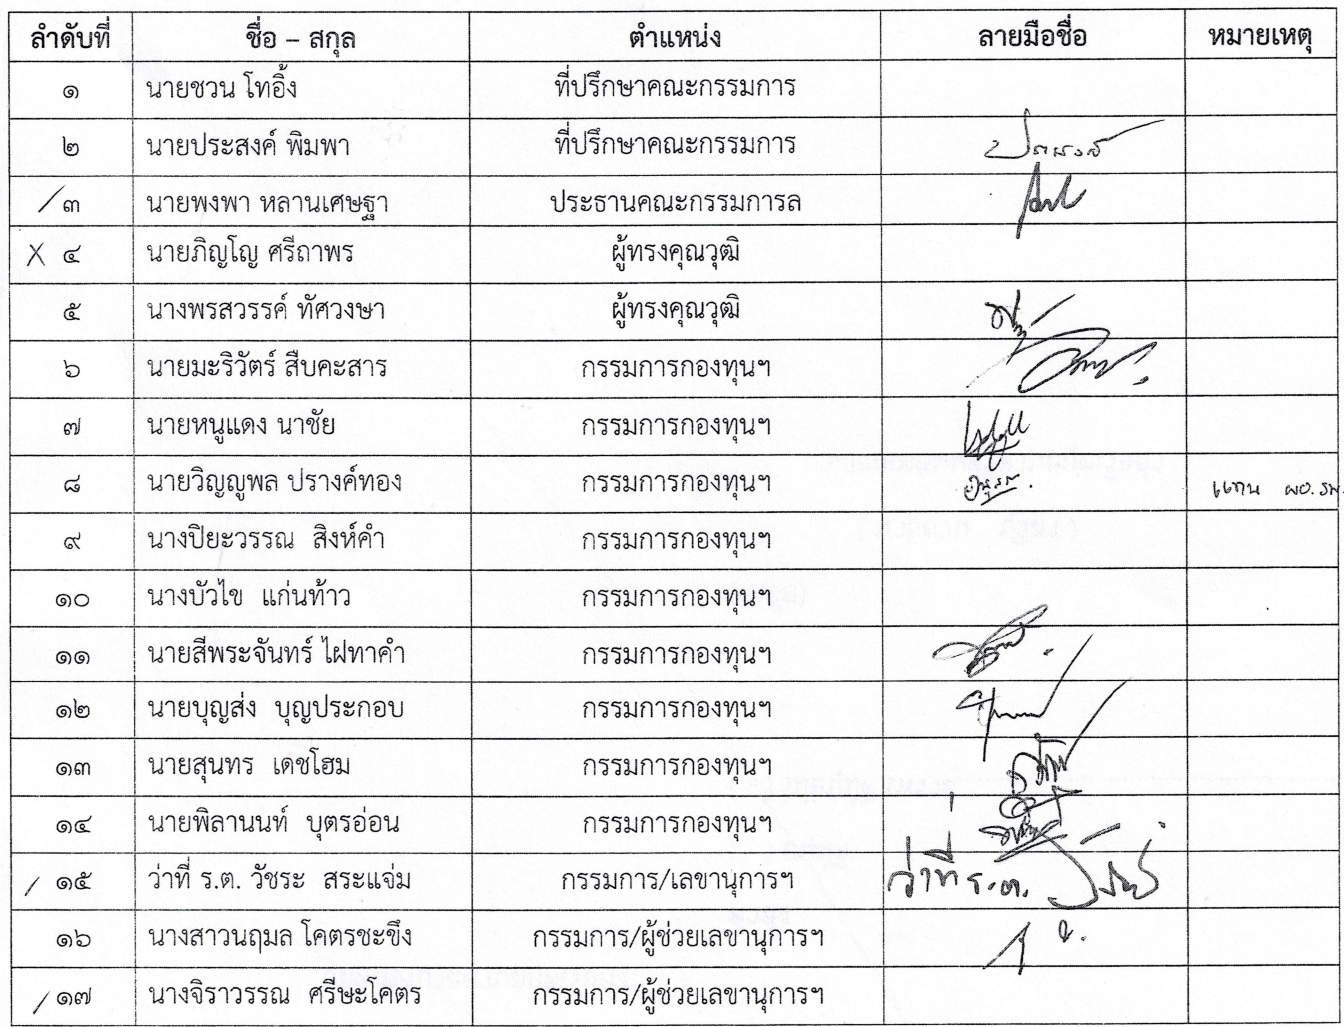 ลำดับที่ ชื่อ – สกุล ตำแหน่ง ลายมือชื่อ หมายเหตุ
๑ นายชวน โทอิ้ง ที่ปรึกษาคณะกรรมการ
๒ นายประสงค์ พิมพา ที่ปรึกษาคณะกรรมการ ประสงค์
/ ๓ นายพงพา หลานเศษฐา ประธานคณะกรรมการล
X ๔ นายภิญโญ ศรีถาพร ผู้ทรงคุณวุฒิ
๕ นางพรสวรรค์ ทัศวงษา ผู้ทรงคุณวุฒิ
๖ นายมะริวัตร์ สืบคะสาร กรรมการกองทุนฯ
๗ นายหนูแดง นาชัย กรรมการกองทุนฯ
๘ นายวิญญูพล ปรางค์ทอง กรรมการกองทุนฯ แทน ผอ.รพ
๙ นางปิยะวรรณ สิงห์คำ กรรมการกองทุนฯ
๑๐ นางบัวไข แก่นท้าว กรรมการกองทุนฯ
๑๑ นายสีพระจันทร์ ไฝทาคำ กรรมการกองทุนฯ
๑๒ นายบุญส่ง บุญประกอบ กรรมการกองทุนฯ
๑๓ นายสุนทร เดชโฮม กรรมการกองทุนฯ
๑๔ นายพิลานนท์ บุตรอ่อน กรรมการกองทุนฯ
/ ๑๕ ว่าที่ ร.ต. วัชระ สระแจ่ม กรรมการ/เลขานุการฯ ว่าที่ ร.ต.
๑๖ นางสาวนฤมล โคตรชะขึง กรรมการ/ผู้ช่วยเลขานุการฯ
/ ๑๗ นางจิราวรรณ ศรีษะโคตร กรรมการ/ผู้ช่วยเลขานุการฯ